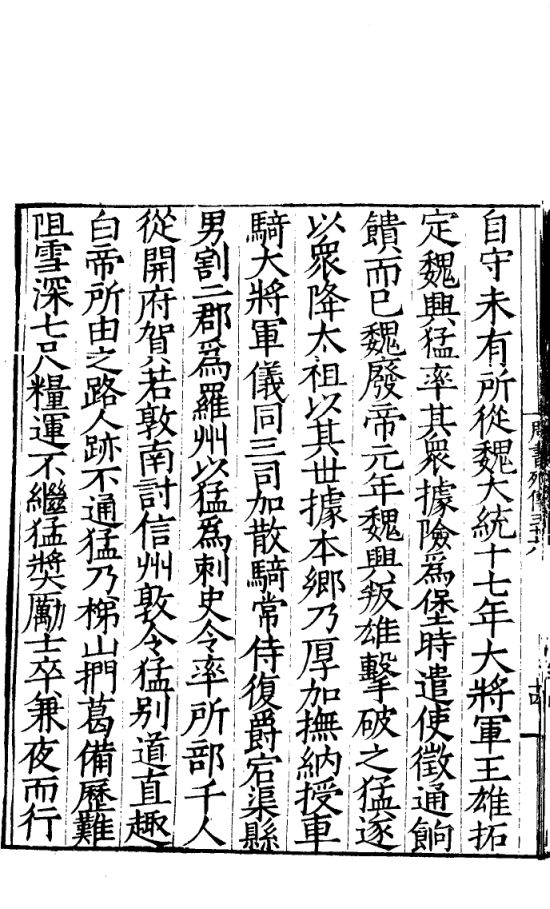 自守未有所從魏大統十七年大將軍王雄拓
定魏興猛率其衆據險爲堡時遣使徵通餉
饋而已魏廢帝元年魏興叛雄擊破之猛遂
以衆降太祖以其世據本鄉乃厚加撫納授車
騎大將軍儀同三司加散騎常侍復爵宕渠縣
男割二郡爲羅州以猛爲刺史令率所部千人
從開府賀若敦南討信州敦令猛别道直趣
白帝所由之路人跡不通猛乃梯山捫葛備歷難
阻雪深七尺糧運不繼猛奬勵士卒兼夜而行
周書列傳三十六